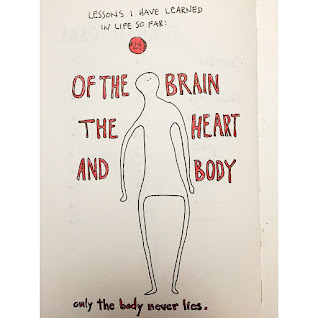 LESSONS I HAVE LEARNED
IN LIFE SO FAR:
29
OF THE BRAIN
THE HEART
AND BODY
only the body never lies.